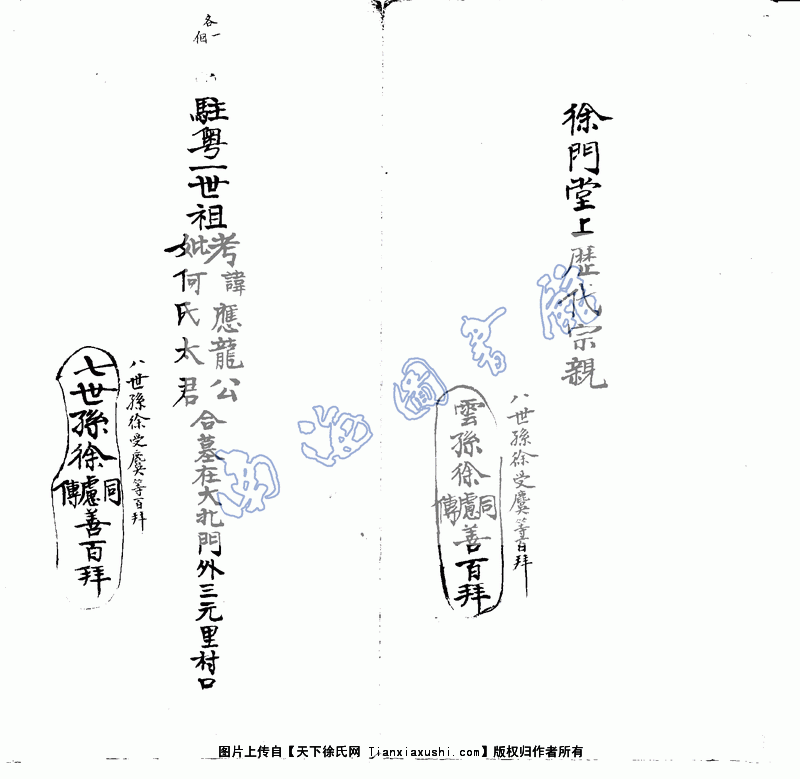 徐門堂上歷代宗親
八世孫徐受麐等百拜
雲孫徐慮善百拜
同
傳
各一個
駐粤一世祖
考諱應龍公
妣何氏太君
合墓在大北門外三元里村口
八世孫徐受麐等百拜
七世孫徐慮善百拜
同
傳
图片上传自【天下徐氏网 Tianxiaxushi.com】版权归作者所有